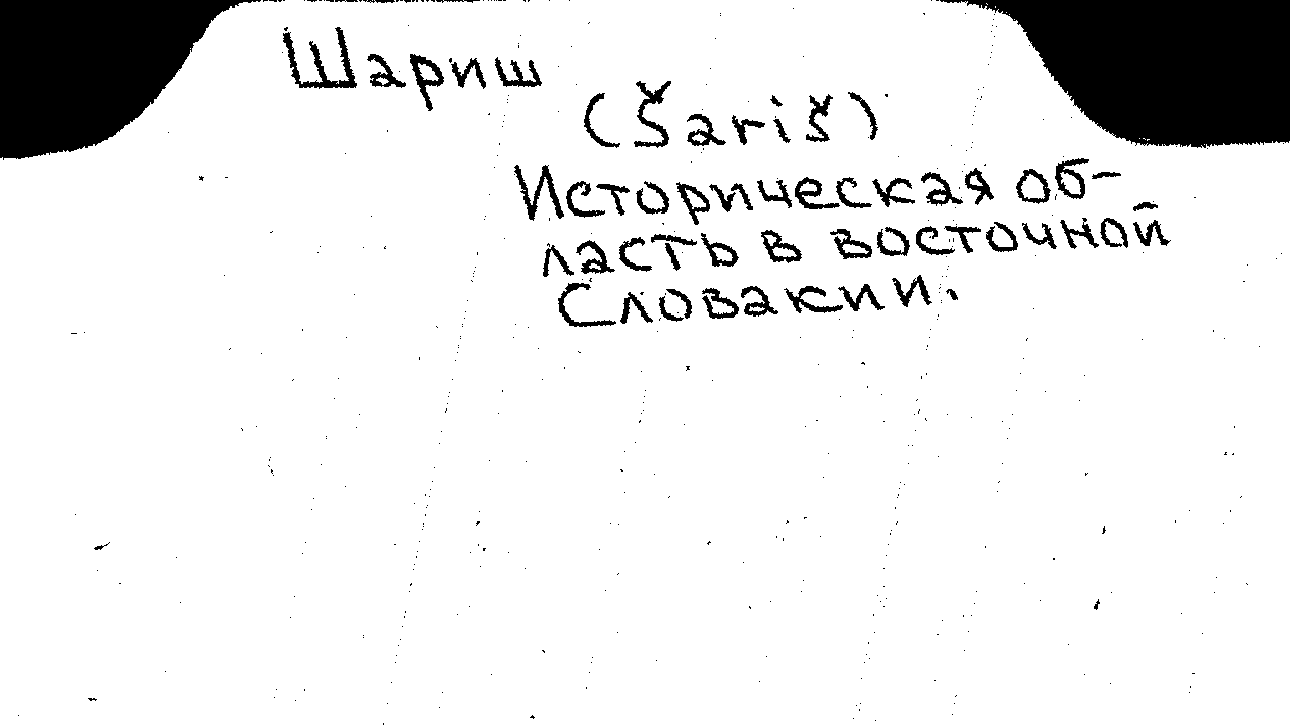 Шариш
(Šariš)
Историческая об-
ласть в восточной
Словакии.